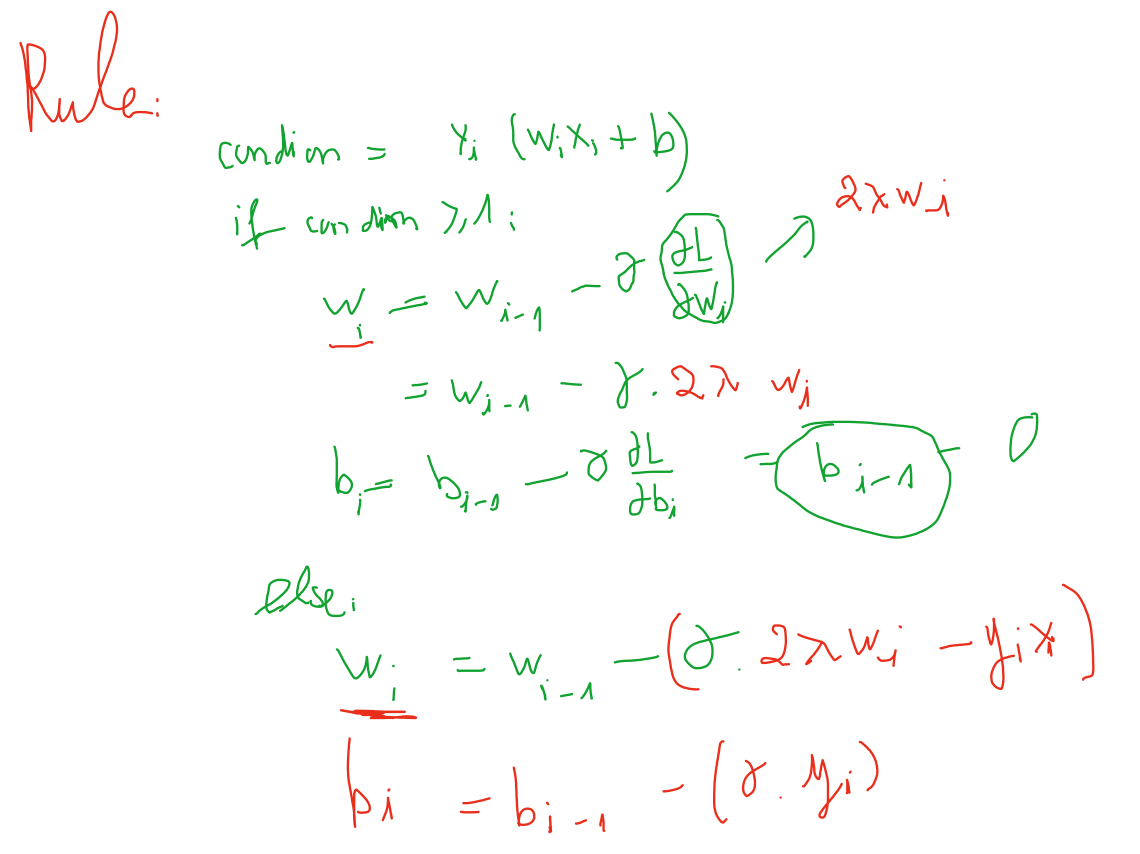 Rule:
condion = Yi (wixi + b)
if condion ⩾ 1:
wi = wi-1 - γ ∂L/∂wi ↗ 2λwi
= wi-1 - γ. 2λ wi
bi = bi-1 - γ ∂L/∂bi = bi-1 - 0
else:
wi = wi-1 - (γ. 2λwi - yixi)
bi = bi-1 - (γ. yi)